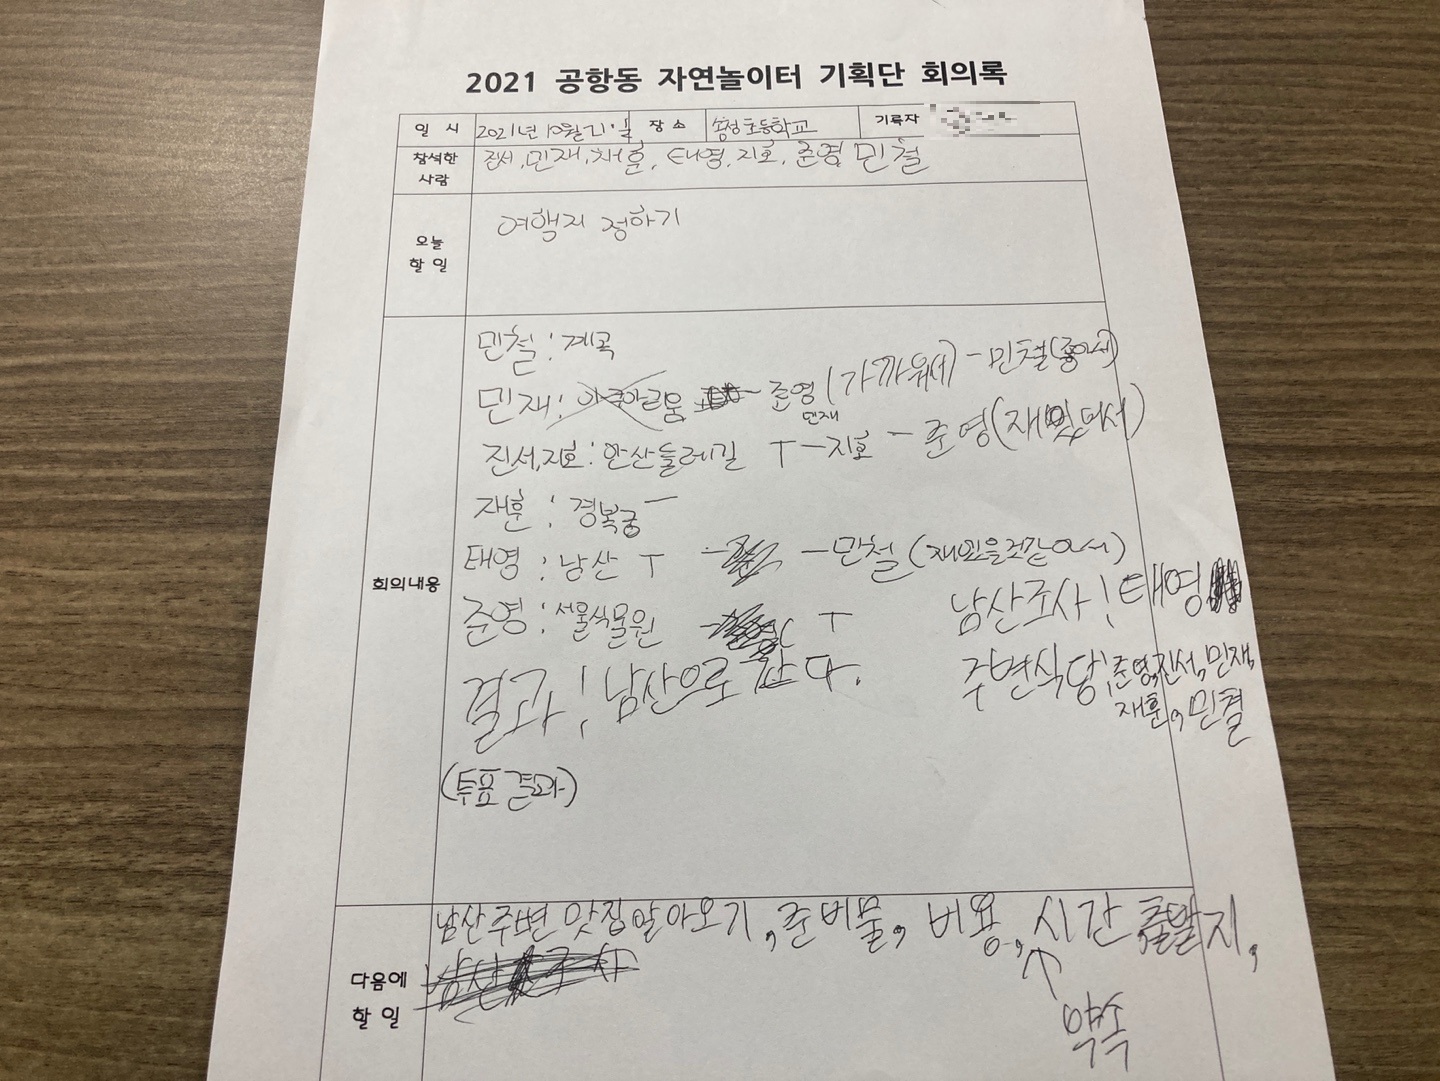 2021 공항동 자연놀이터 기획단 회의록
일 시 2021년 10월 21일 장 소 송정초등학교 기록자
참석한 사람 진서, 민재, 재훈, 태영, 지호, 준영, 민철
오늘 할 일 여행지 정하기
회의내용
민철 : 계곡
민재 : 아쿠아리움 - 준영 (가까워서) - 민철 (좋아서)
민재
진서, 지호 : 안산둘레길 T - 지호 - 준영 (재밌어서)
재훈 : 경복궁 一
태영 : 남산 T - 민철 (재밌을것같아서)
준영 : 서울식물원 T
남산조사 : 태영
결과 : 남산으로 간다.
주변식당 : 준영, 진서, 민재,
재훈, 민철
(투표 결과)
다음에 할 일
남산 주변 맛집 알아오기, 준비물, 비용, 시간, 출발지,
남산조사
약속